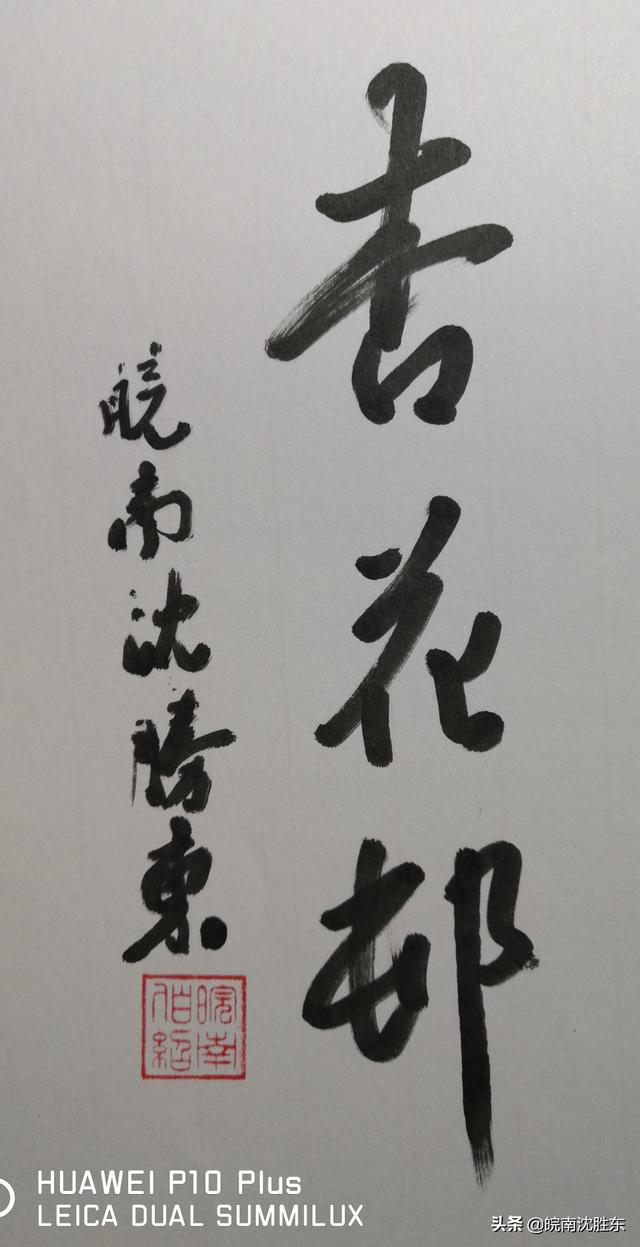 杏花邨
皖南沈勝東
皖南伯紹
HUAWEI P10 Plus
LEICA DUAL SUMMILUX
头条 @皖南沈胜东